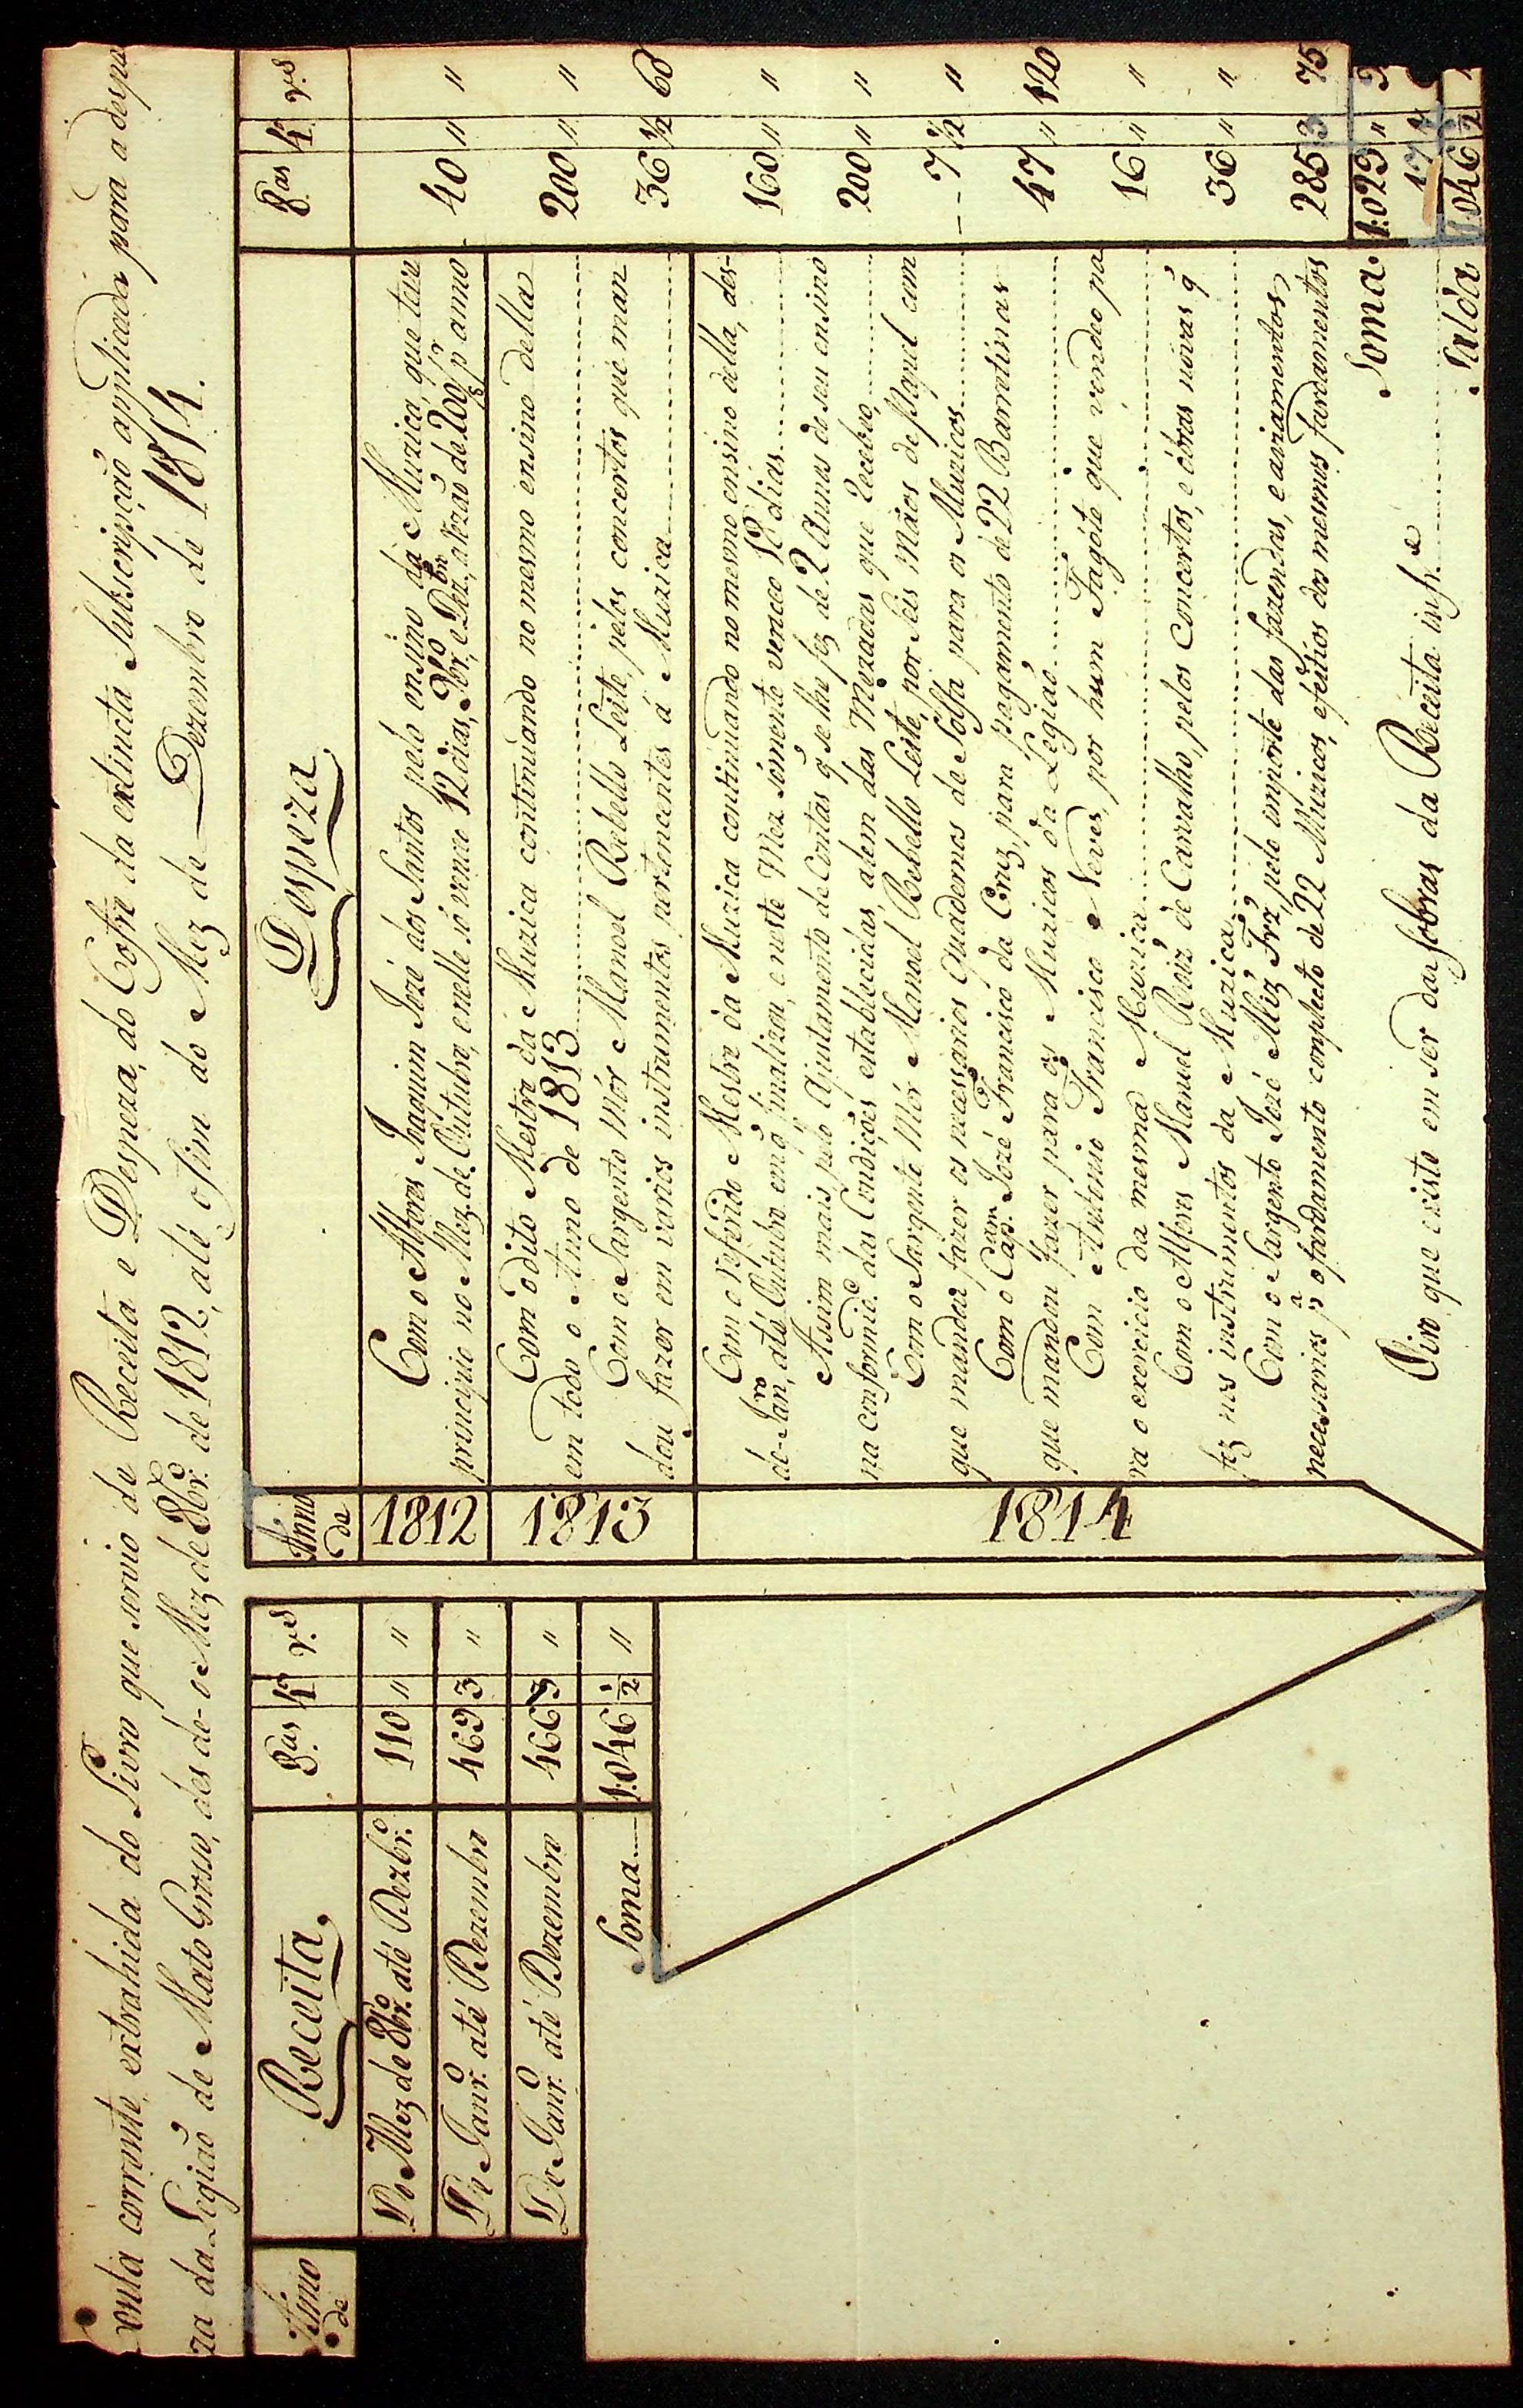 Conta corrente, extrahida do Livro que servio de Receita e Despeza, do Cofre da extincta Subscripção applicada para a despe
za da Legião de Mato Grosso, des do o Mez de 8br.º de 1812, até o fim do Mez de Dezembro de 1814.
Anno de
Receita.
8.as 4.os r.s
Do Mez de 8br.º até Dezbr.º 110 " "
Do Janr.º até Dezembro 469 3 "
Do Janr.º até Dezembro 466 3 "
Soma 1.046 1/2 "
Anno de
Despeza
8.as 4.os r.s
1812
Com o Alferes Joaquim Jozé dos Santos pelo ensino da Muzica, que teve
principio no Mez de Outubro, e nelle só venceo 12 dias, 9br.º e Dezbr.º, a rezão de 200/8 p.r anno 40 " "
1813
Com o dito Mestre da Muzica continuando no mesmo ensino della
em todo o Anno de 1813 200 " "
Com o Sargento Mór Manoel Rebello Leite, pelos concertos que man
dou fazer em varios instrumentos pertencentes á Muzica 36 1/2 60
1814
Com o referido Mestre da Muzica continuando no mesmo ensino della, des-
de Jan.ro até Outubro em q̃ finalizou, e neste Mez sómente venceo 18 dias 160 " "
Assim mais pelo Ajustamento de Contas q̃ se lhe fez de 2 Annos de seu ensino
na conformid.e das Condições estabelecidas, alem das Mezadas que recebeo, 200 " "
Com o Sargento Mór Manoel Rebello Leite, por Seis Mãos de Papel com
que mandou fazer os necessarios Quadernos de Solfa para os Muzicos 7 1/2 "
Com o Cap.am Jozé Francisco da Cruz, para pagamento de 22 Barretinas
que mandou fazer para os Muzicos da Legião 47 " 120
Com Antonio Francisco Neves, por hum Fagóte que vendeo pa
ra o exercicio da mesma Muzica 16 " "
Com o Alferes Manuel Roiz' de Carvalho, pelos concertos, e obras novas q̃
fez nos instrumentos da Muzica 36 " "
Com o Sargento Jozé Miz' Frz', pelo importe das fazendas, e aviamentos
necessarios p.a o fardamento completo de 22 Muzicos, e feitios dos mesmos fardamentos 285 3 75
Soma 1.029 "
Dinr.º que existe em ser das Sobras da Receita 17
Salda 1.046 1/2